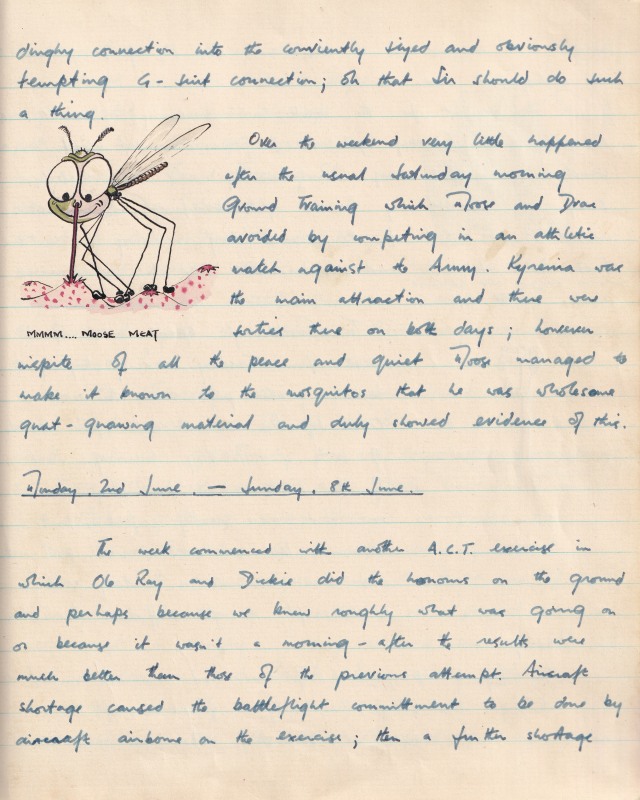 dinghy connection into the conviently sized and obviously
tempting G-suit connection; Oh that Sir should do such
a thing.
Over the weekend very little happened
after the usual Saturday morning
Ground Training which Moose and Drac
avoided by competing in an athletic
match against the Army. Kyrenia was
the main attraction and there were
sorties there on both days; however
MMMM.... MOOSE MEAT
inspite of all the peace and quiet Moose managed to
make it known to the mosquitos that he was wholesome
gnat-gnawing material and duly showed evidence of this.
Monday. 2nd June. — Sunday. 8th June.
The week commenced with another A.C.T. exercise in
which Ob Ray and Dickie did the honours on the ground
and perhaps because we knew roughly what was going on
or because it wasn't a morning-after the results were
much better than those of the previous attempt. Aircraft
shortage caused the battleflight committment to be done by
aircraft airborne on the exercise; then a further shortage